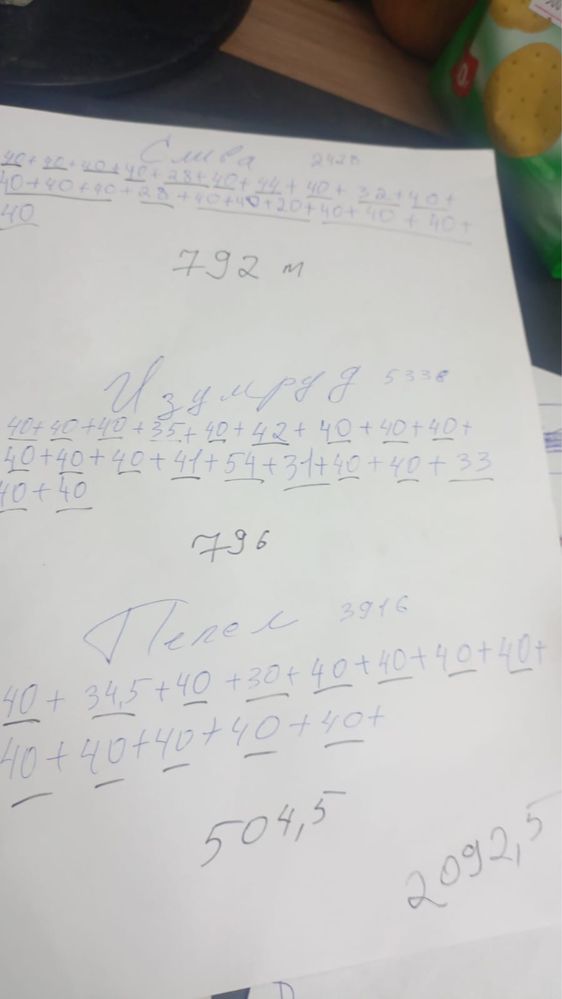 Слива 2428
40+40+40+40+28+40+44+40+32+40+
40+40+40+28+40+40+20+40+40+40+
40
792 м
Изумруд 5338
40+40+40+35+40+42+40+40+40+
40+40+40+41+54+31+40+40+33
40+40
796
Пепел 3916
40+34,5+40+30+40+40+40+40+
40+40+40+40+40+
504,5
2092,5